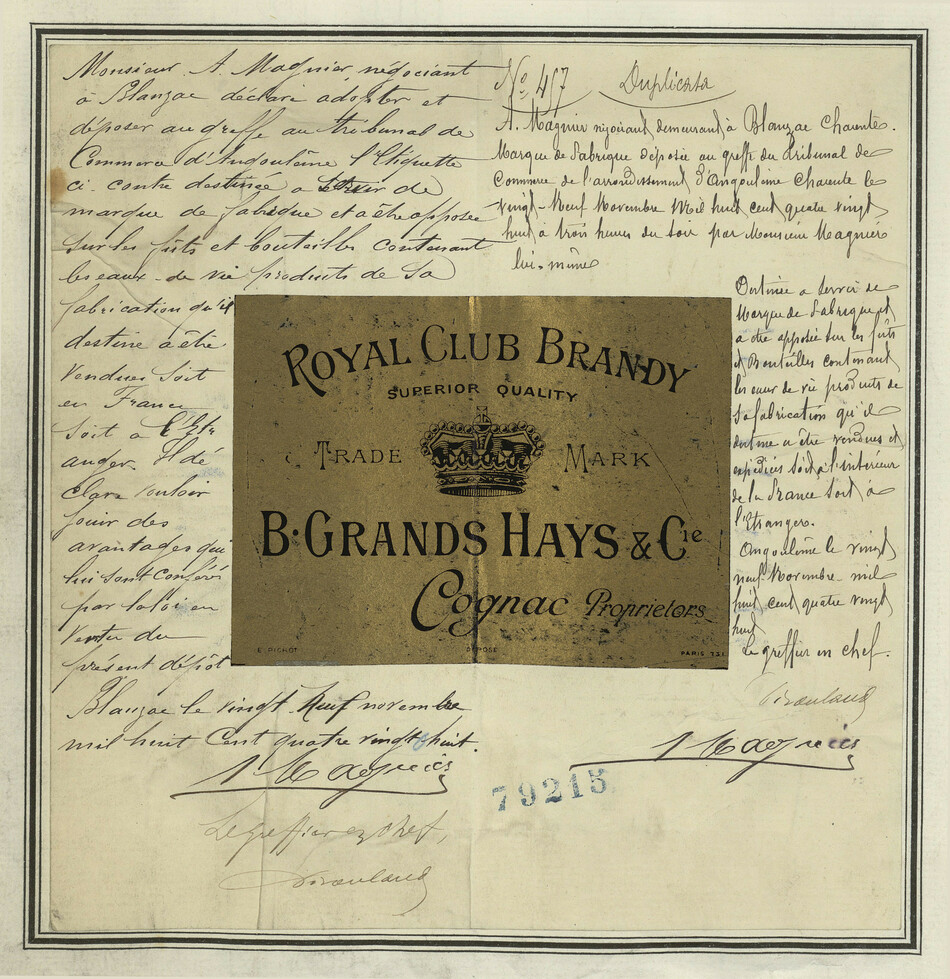 Monsieur A. Magnier, négociant
à Blanzac déclare adopter et
déposer au greffe au tribunal de
Commerce d'Angoulême l'Etiquette
ci-contre destinée a de
marque de fabrique et a être apposée
sur les fûts et bouteilles contenant
les eaux-de-vie produits de sa
fabrication qu'il
destine à être
vendues soit
en France
soit à l'Etr
anger. Il dé
clare vouloir
jouir des
avantages qui
lui sont conférés
par la loi en
vertu du
présent dépôt
Blanzac le vingt Neuf novembre
mil huit Cent quatre vingt huit.
A Magnier
Le greffier en chef,
No 457 Duplicata
A. Magnier négociant demeurant à Blanzac Charente.
Marque de Fabrique déposée au greffe du Tribunal de
Commerce de l'arrondissement d'Angoulême Charente le
vingt-Neuf Novembre Mil huit cent quatre vingt
huit à trois heures du soir par Monsieur Magnier
lui-même
Destinée a servir de
Marque de Fabrique et
a être apposée sur les fûts
et Bouteilles contenant
les eaux de vie produits de
sa fabrication qu'il
destine a être vendues et
expédiées soit à l'intérieur
de la France soit à
l'Etranger.
Angoulême le vingt
neuf Novembre mil
huit cent quatre vingt
huit
Le greffier en chef.
A Magnier
79215
ROYAL CLUB BRANDY
SUPERIOR QUALITY
TRADE MARK
B. GRANDS HAYS & Cie
Cognac Proprietors
E. PICHOT DÉPOSÉ PARIS 121